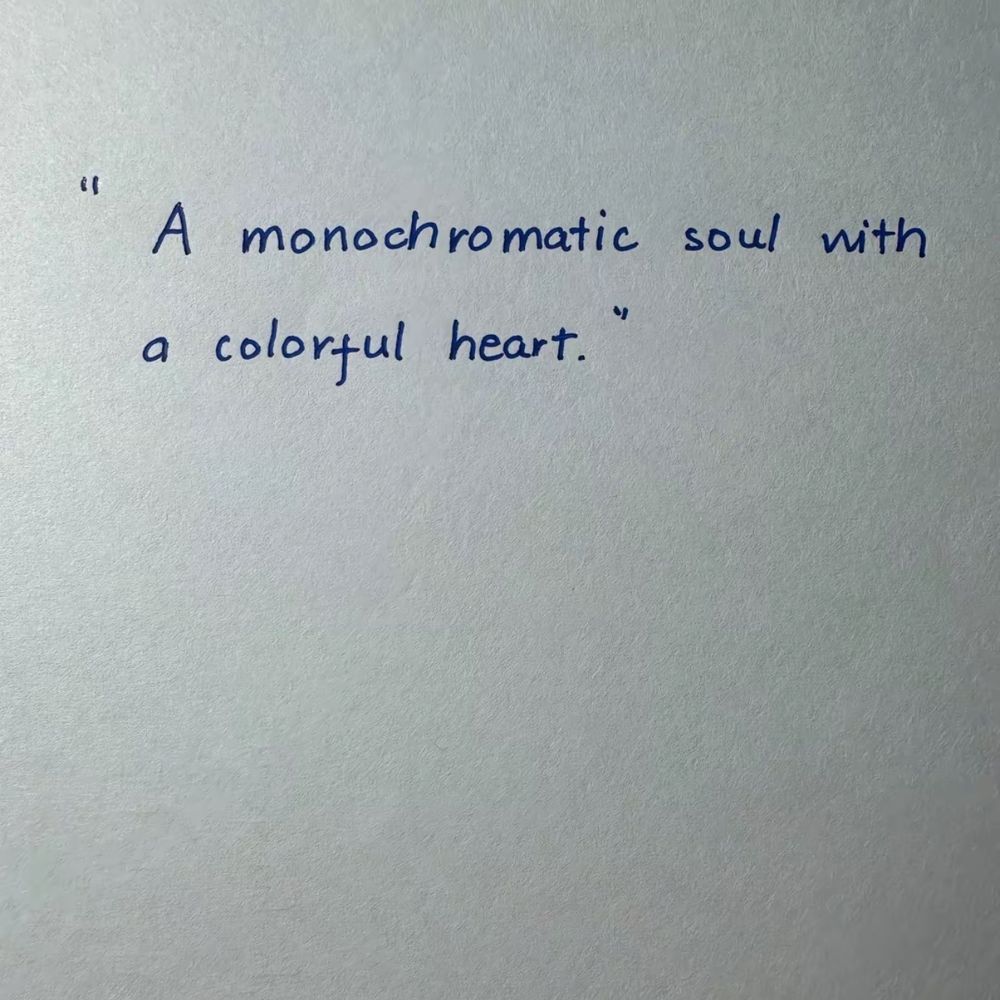 " A monochromatic soul with
a colorful heart."